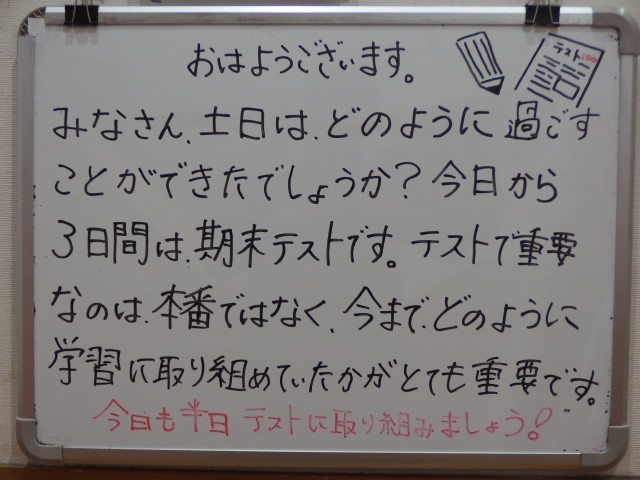 おはようございます。
テスト100
みなさん、土日は、どのように過ごす
ことができたでしょうか?今日から
3日間は、期末テストです。テストで重要
なのは、本番ではなく、今まで、どのように
学習に取り組めていたかがとても重要です。
今日も半日テストに取り組みましょう!